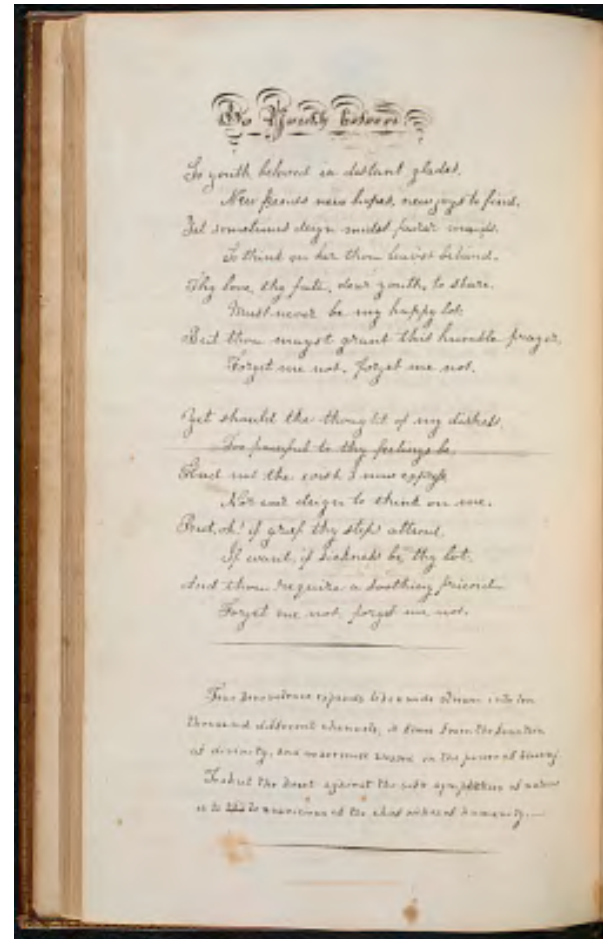 To Youth beloved
Go youth beloved in distant glades,
New friends new hopes, new joys to find.
Yet sometimes deign midst fairer maids.
To think on her thou leav'st behind.
Thy love, thy fate, dear youth, to share.
Must never be my happy lot.
But thou mayst grant this humble prayer.
Forget me not, forget me not.
Yet should the thought of my distress.
Too painful to thy feelings be.
Heed not the wish I now express
Nor ever deign to think on me.
But, oh! if grief thy steps attend.
If want, if sickness be thy lot.
And thou require a soothing friend
Forget me not forget me not.
True benevolence expands like a wide stream into ten
thousand different channels, it flows from the fountain
of divinity, and
To shut the heart against the soft sympathies of nature
is to of humanity.